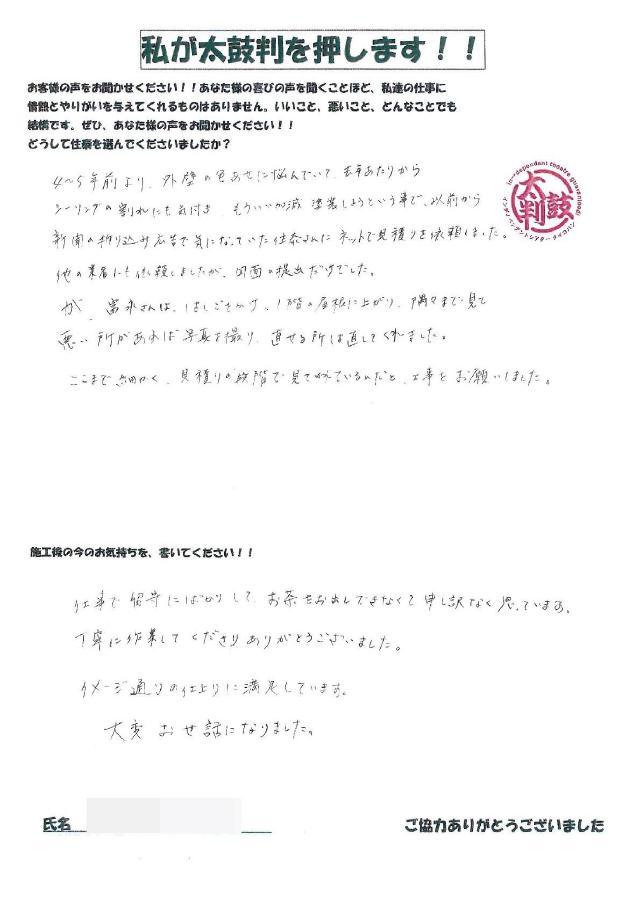 私が太鼓判を押します！！
お客様の声をお聞かせください！！あなた様の喜びの声を聞くことほど、私達の仕事に
情熱とやりがいを与えてくれるものはありません。いいこと、悪いこと、どんなことでも
結構です。ぜひ、あなた様の声をお聞かせください！！
どうして住泰を選んでくださいましたか？
4〜5年前より、外壁の色あせに悩んでいて、去年あたりから
シーリングの割れにも気付き、もういいかげん塗装しようという事で、以前から
新聞の折り込み広告で気になっていた住泰さんにネットで見積りを依頼しました。
他の業者にも依頼しましたが、図面の提出だけでした。
が、富永さんは、はしごをかけ、1階の屋根に上がり、隅々まで見て
悪い所があれば写真を撮り、直せる所は直してくれました。
ここまで細かく、見積りの段階で見てくれているんだと、工事をお願いしました。
independent theatre guaranteed!
太鼓判
インディペンデントシアター タイコバン
施工後の今のお気持ちを、書いてください！！
仕事で留守にばかりして、お茶をお出しできなくて申し訳なく思っています。
丁寧に作業してくださりありがとうございました。
イメージ通りの仕上りに満足しています。
大変お世話になりました。
氏名
ご協力ありがとうございました